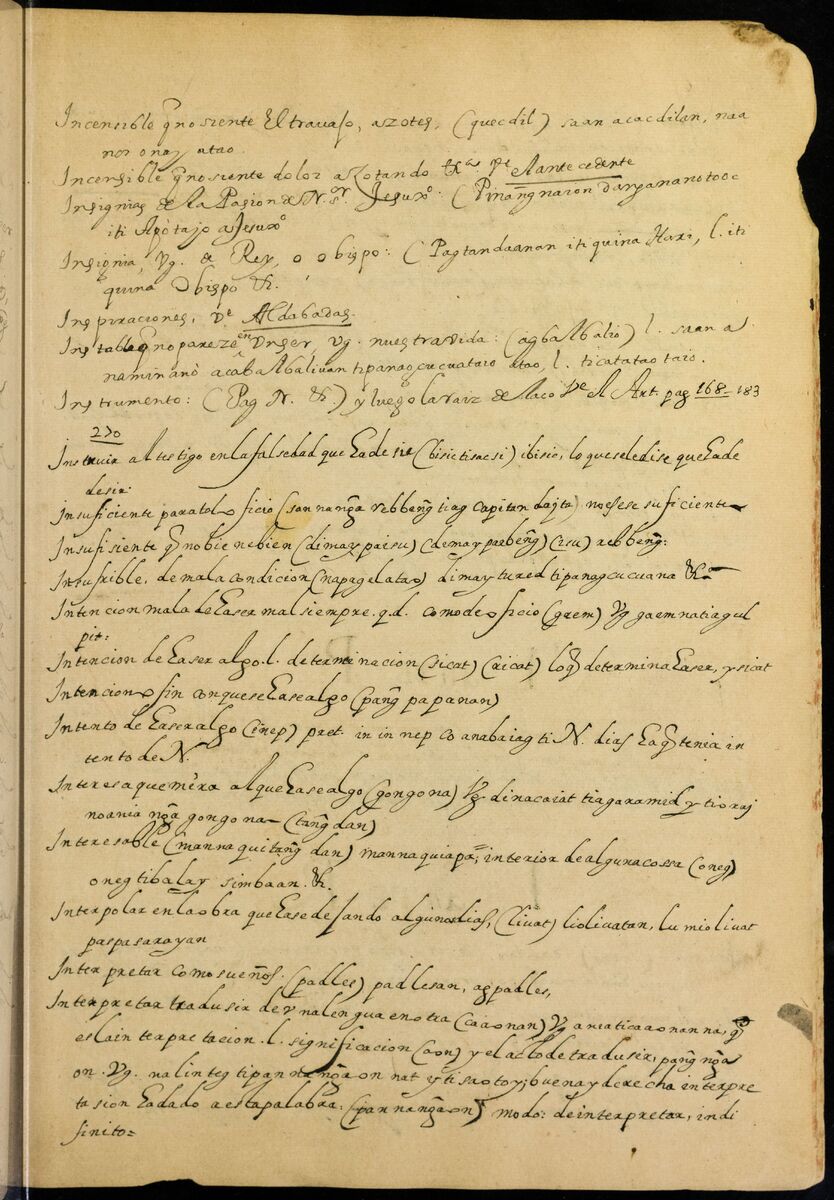 Incensible q̃ no siente El travajo, azotes, (quecdil) saan acacdilan, naa
nor onay atao
Incensible q̃ no siente dolor azotando &.ª Vᵉ El antecedente
Insignias de la Pasion de N. Sʳ. Jesuxº: (Pinang̃naron dar̃pananotooc
iti Apo tajo a Jesuxº
Insignia, Vg. de Rey, o obispo: (Pagtandaanan iti quina Hari, l. iti
quina Obispo &.
Inspiraciones, Vᵉ Aldabadas.
Instable q̃ no pareze en Vnser, Vg. nuestra vida: (agbalbalio) l. saan a
naminano a cabalbalivan ti panagcucuataio atao, l. ticatatao taio.
Instrumento: (Pag N. &.) y luego la raiz de Raco Vᵉ El Art. pag 168- 183
270
Instruir al testigo en la falsedad que ha de (bisictisaesi) ibisic, lo que se le dise que ha de
desir.
Insuficiente para tal oficio (san nang̃a rebbeng̃ tiag capitan dajta) no es ese suficiente
Insufisiente q̃ no bie ne bien (di may paisu) (de may paebeng̃) (isu) rebbeng̃:
Insufrible, de mala condicion (napagel atao) di may tured ti panagcucuana &.ª
Intencion mala de haser mal siempre. q.d. como de oficio (grem) Vg gaem natiagul
pit:
Intencion de haser algo .l. determinacion (sicat) (ricat) lo q̃ determina haser, ysicat
Intencion o fin con que se hase algo (pang̃ papanan)
Intento de haser algo (inep) pret. in in nep co anabaiag ti N. dias ha q̃ tenia in
tento de N.
Interesa que mira al que hase algo (gongona) Vg dinacaiat tiagaramid y tioraj
noania ng̃a gongona (tang̃dan)
Interesable (mannaquitang̃ dan) mannaquiapa; interior de alguna cossa (oneg)
oneg tibalay simbaan. &.
Interpolar en la obra que hase dejando algunos dias, (livat) liolivatan, lumiolivat
paspasarayan
Interpretar como sueños. (padles) padlesan, agpadles,
Interpretar tradusir de vna lengua en otra (caaonan) Vg aniaticaaonanna, q̃
es la interpretacion .l. significacion (aon) y el acto de tradusir, pang̃ng̃a
on. Vg. nalinteg tipannang̃aon nat ytisaotoy; buena y derecha interpre
tasion ha dado a esta palabra: (pannang̃aon) modo: de interpretar, indi
finito=